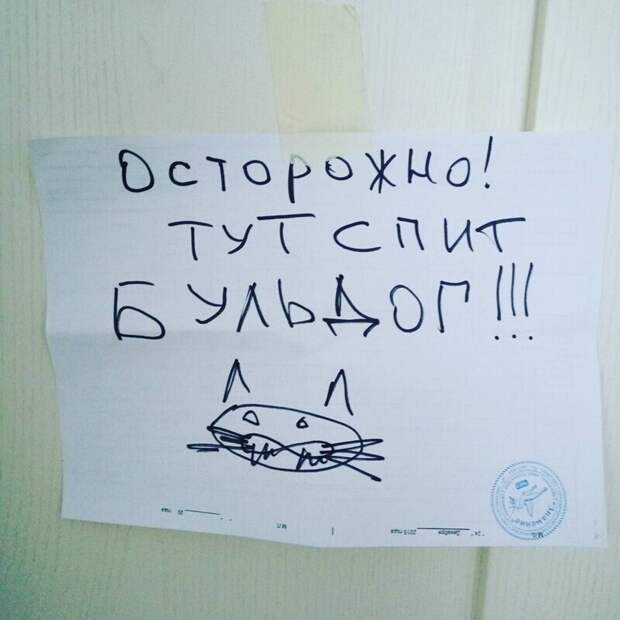 ОСТОРОЖНО!
ТУТ СПИТ
БУЛЬДОГ!!!
" " 20 года
М.П.
"24" Декабря 2015 года
М.П.